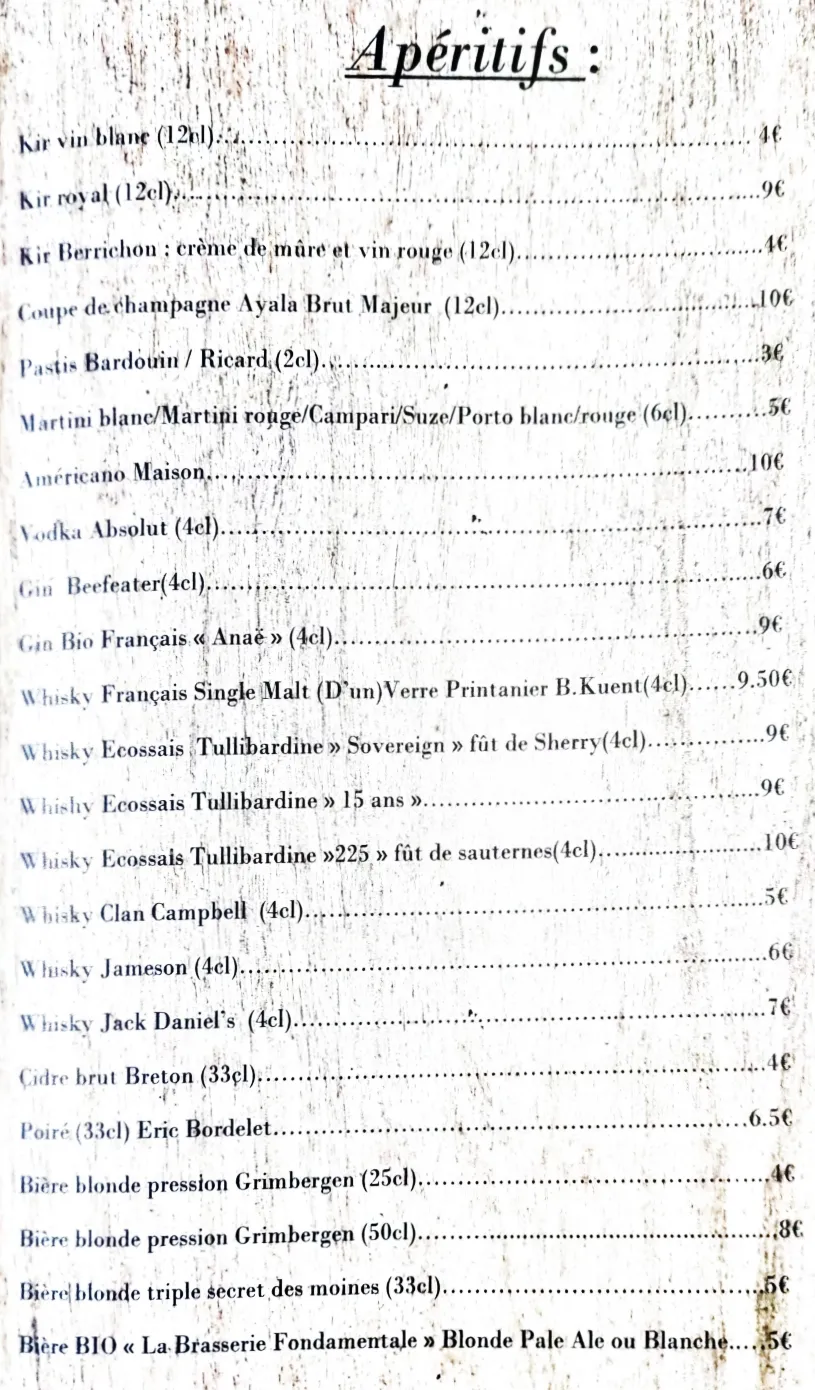 Apéritifs :
Kir vin blanc (12cl)..................4€
Kir royal (12cl)..................9€
Kir Berrichon : crème de mûre et vin rouge (12cl)..................4€
Coupe de champagne Ayala Brut Majeur (12cl)..................10€
Pastis Bardouin / Ricard (2cl)..................3€
Martini blanc/Martini rouge/Campari/Suze/Porto blanc/rouge (6cl)..........5€
Américano Maison..................10€
Vodka Absolut (4cl)..................7€
Gin Beefeater(4cl)..................6€
Gin Bio Français « Anaë » (4cl)..................9€
Whisky Français Single Malt (D'un)Verre Printanier B.Kuent(4cl)......9.50€
Whisky Ecossais Tullibardine » Sovereign » fût de Sherry(4cl)..............9€
Whishy Ecossais Tullibardine » 15 ans »..................9€
Whisky Ecossais Tullibardine »225 » fût de sauternes(4cl)..................10€
Whisky Clan Campbell (4cl)..................5€
Whisky Jameson (4cl)..................6€
Whisky Jack Daniel's (4cl)..................7€
Cidre brut Breton (33cl)..................4€
Poiré (33cl) Eric Bordelet..................6.5€
Bière blonde pression Grimbergen (25cl)..................4€
Bière blonde pression Grimbergen (50cl)..................8€
Bière blonde triple secret des moines (33cl)..................5€
Bière BIO « La Brasserie Fondamentale » Blonde Pale Ale ou Blanche.....5€